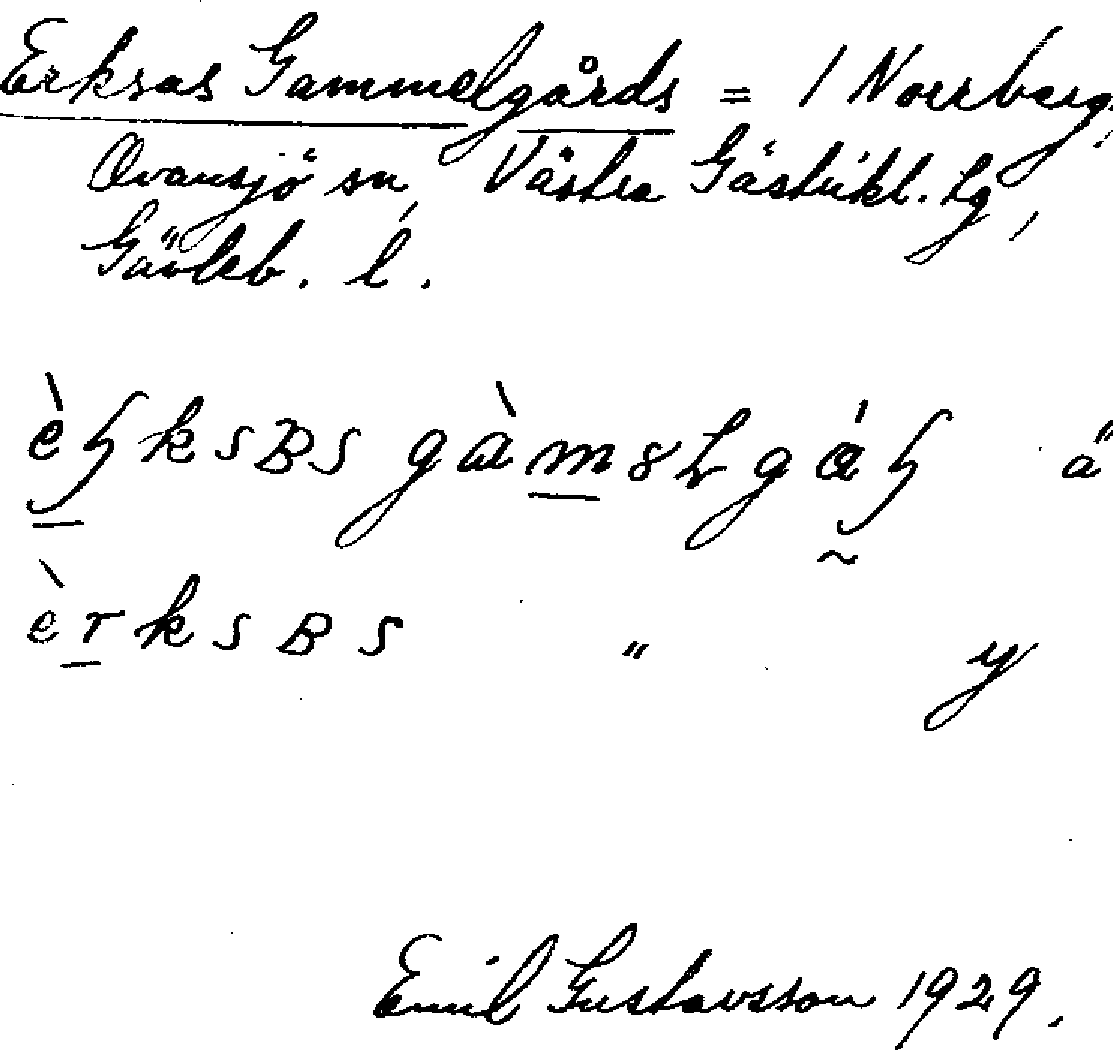 Erksas Gammelgårds = 1 Norrberg,
Ovansjö sn, Västra Gästrikl. hg,
Gävleb. l.
ä
èrksBs " y
Emil Gustavsson 1929.